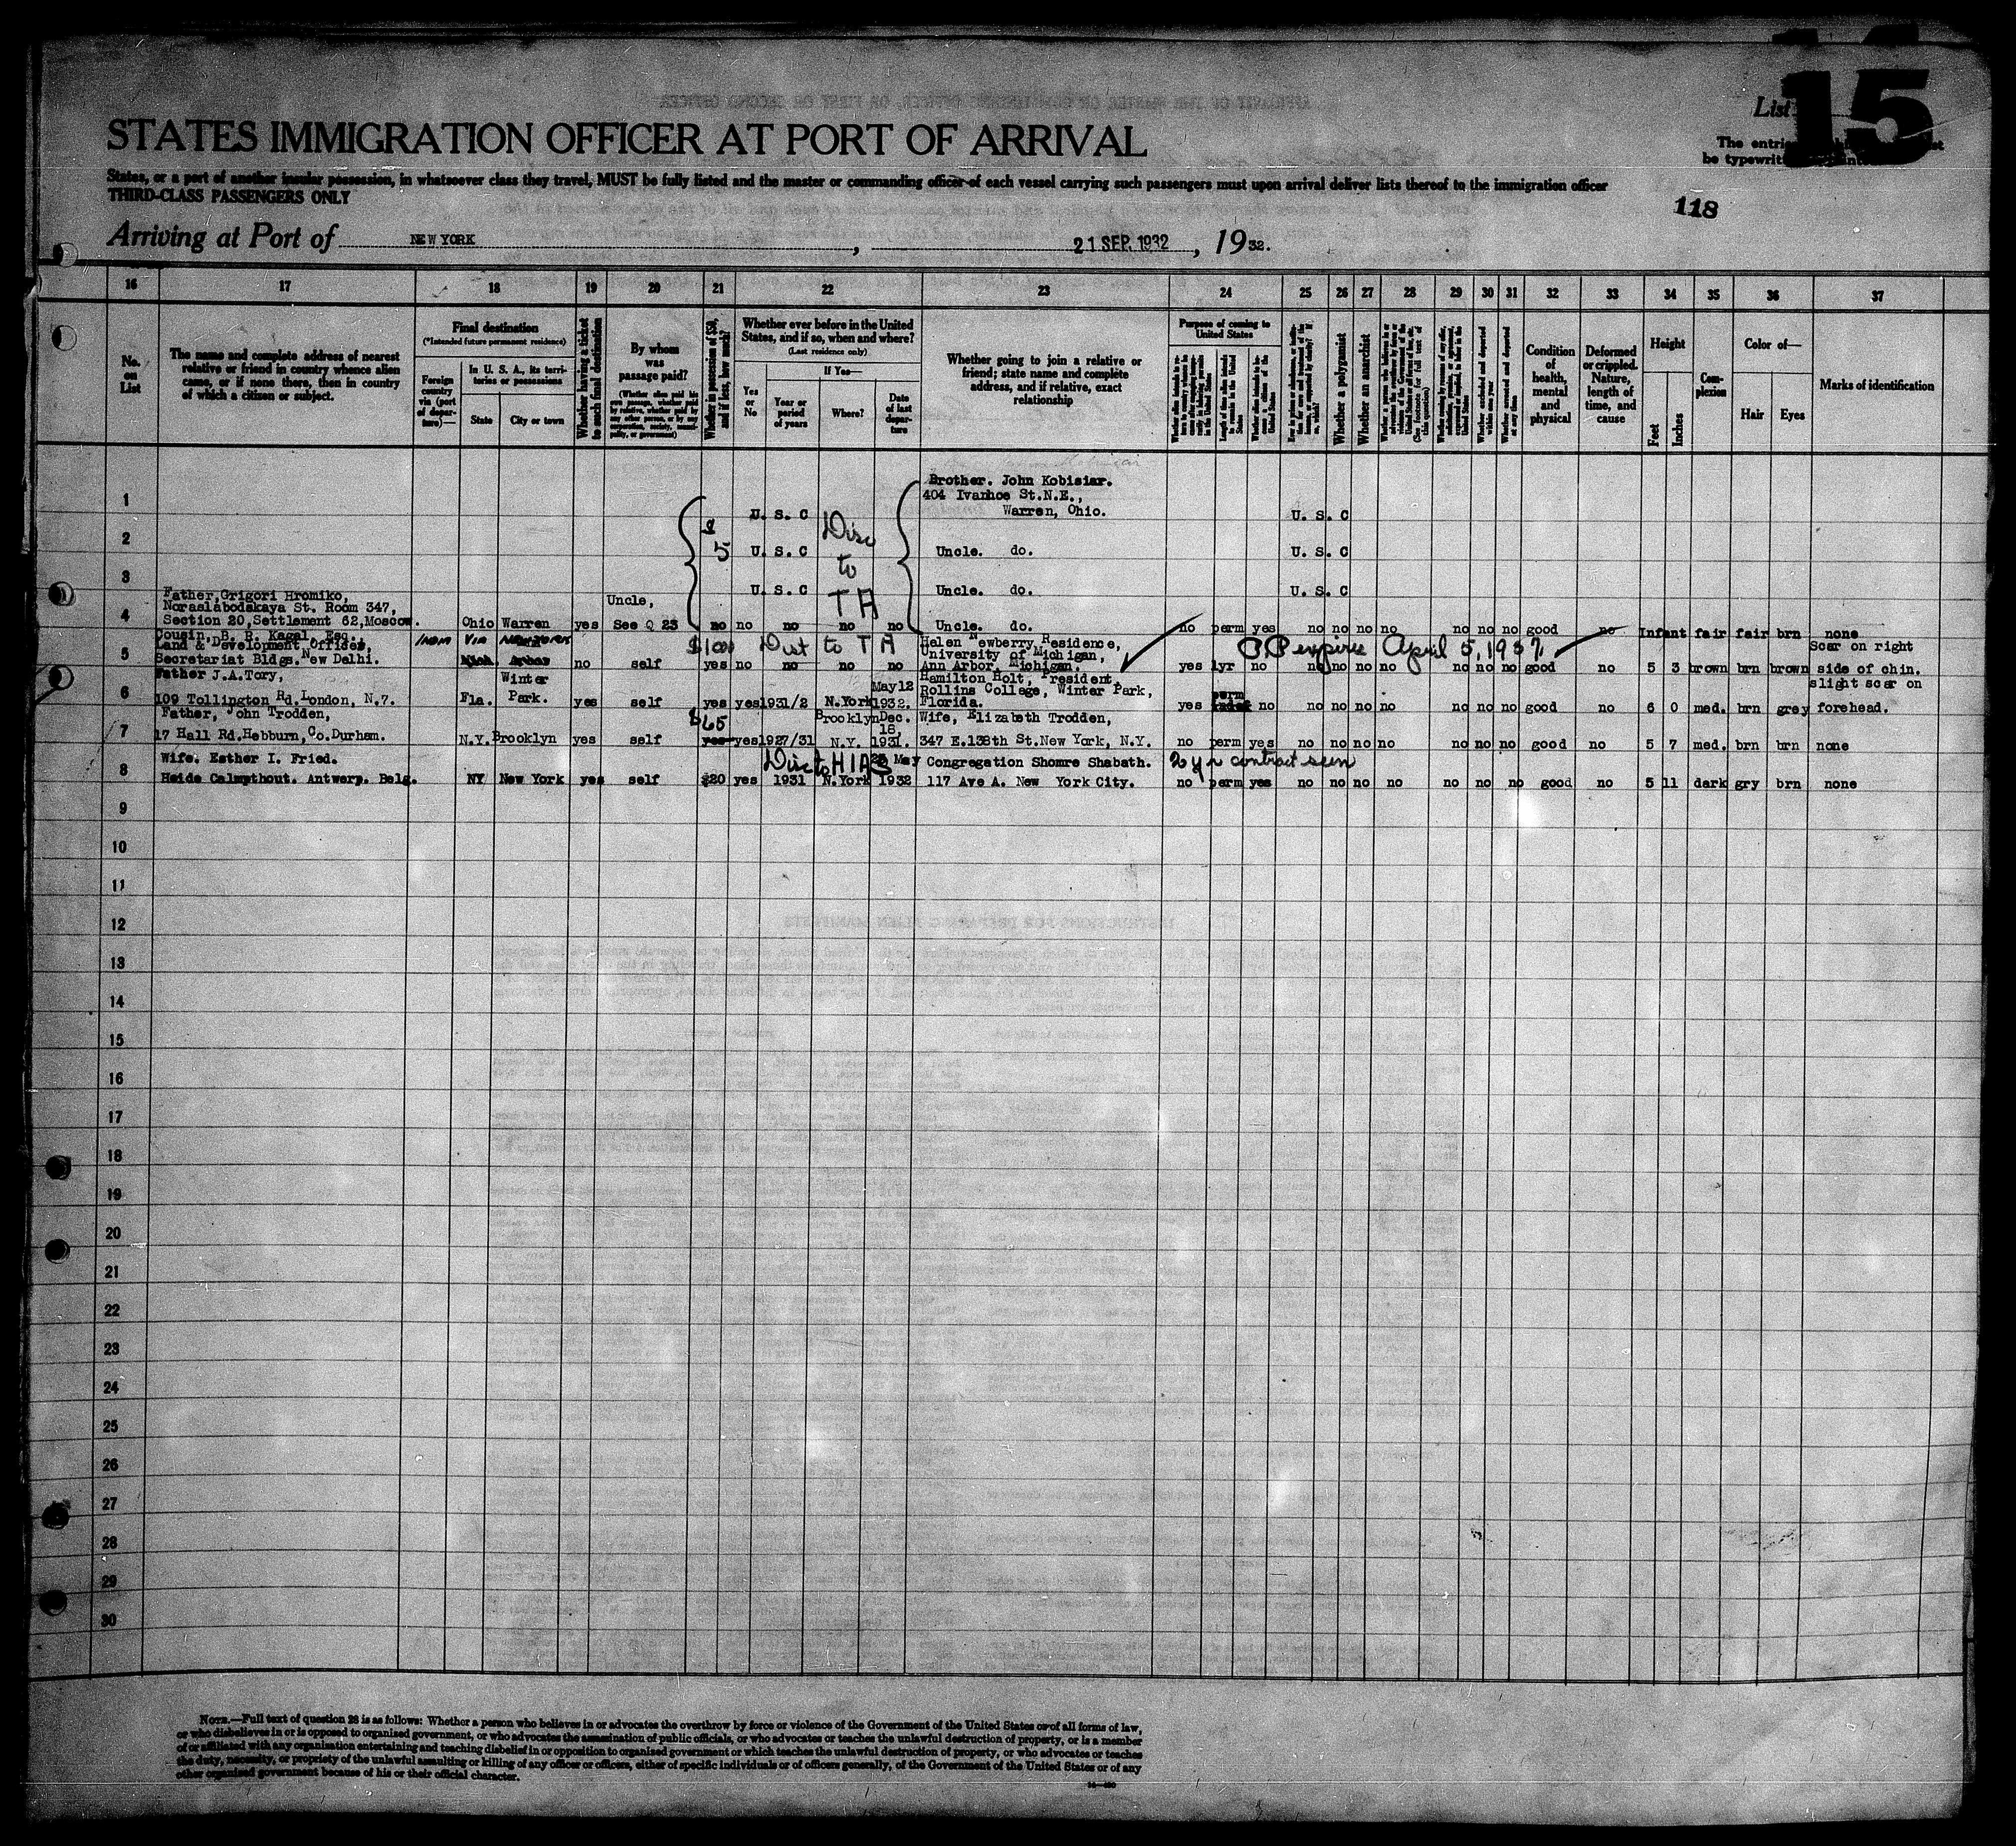 15
List
The entries
be typewrit
STATES IMMIGRATION OFFICER AT PORT OF ARRIVAL
States, or a port of another insular possession, in whatsoever class they travel, MUST be fully listed and the master or commanding officer of each vessel carrying such passengers must upon arrival deliver lists thereof to the immigration officer
THIRD-CLASS PASSENGERS ONLY
118
Arriving at Port of NEW YORK, 21 SEP. 1932, 1932.
16 17 18 19 20 21 22 23 24 25 26 27 28 29 30 31 32 33 34 35 36 37
No. on List
The name and complete address of nearest relative or friend in country whence alien came, or if none there, then in country of which a citizen or subject.
Final destination
(*Intended future permanent residence)
Foreign country via (port of departure)—
In U. S. A., its territories or possessions
State
City or town
Whether having a ticket to such final destination
By whom was passage paid?
(Whether alien paid his own passage, whether paid by relative, whether paid by any other person, or by any corporation, society, municipality, or government)
Whether in possession of $50, and if less, how much?
Whether ever before in the United States, and if so, when and where?
(Last residence only)
Yes or No
If Yes—
Year or period of years
Where?
Date of last departure
Whether going to join a relative or friend; state name and complete address, and if relative, exact relationship
Purpose of coming to United States
Length of time alien intends to remain in the United States
Whether alien intends to become a citizen of the United States
Whether a polygamist
Whether an anarchist
Condition of health, mental and physical
Deformed or crippled. Nature, length of time, and cause
Height
Feet
Inches
Complexion
Color of—
Hair
Eyes
Marks of identification
Brother. John Kobisiar.
1 404 Ivanhoe St.N.E.,
U. S. C Warren, Ohio. U. S. C
2 $ 5 U. S. C Disc to TA Uncle. do. U. S. C
3 U. S. C Uncle. do. U. S. C
Father,Grigori Hromiko,
Noraslabodskaya St. Room 347, Uncle,
4 Section 20,Settlement 62,Moscow. Ohio Warren yes See Q 23 no no no no no Uncle. do. no perm yes no no no no no no no good no Infant fair fair brn none
Cousin, B. R. Kagal, Esq. Via New York $100 Dist to TA Helen Newberry Residence, PP expires April 5, 1937
Land & Development Officer, University of Michigan, Scar on right
5 Secretariat Bldgs. New Delhi. Mich. Arbor no self yes no no no no Ann Arbor, Michigan. yes 1yr no no no no no no no no good no 5 3 brown brn brown side of chin.
Father J.A.Tory, Winter May12 Hamilton Holt, President, slight scar on
6 109 Tollington Rd.London, N.7. Fla. Park. yes self yes yes 1931/2 N.York 1932. Rollins College, Winter Park, Florida. yes perm no no no no no no no no good no 6 0 med. brn grey forehead.
Father, John Trodden, $65 Brooklyn Dec. 18 Wife, Elizabeth Trodden,
7 17 Hall Rd.Hebburn,Co.Durham. N.Y. Brooklyn yes self yes yes 1927/31 N.Y. 1931. 347 E.138th St.New York, N.Y. no perm yes no no no no no no no good no 5 7 med. brn brn none
Wife. Esther I. Fried. Disc to HIAS May Congregation Shomre Shabath. 2 yr contract seen
8 Heide Calmpthout. Antwerp. Belg. NY New York yes self $20 yes 1931 N.York 1932 117 Ave A. New York City. no perm yes no no no no no no no good no 5 11 dark gry brn none
9
10
11
12
13
14
15
16
17
18
19
20
21
22
23
24
25
26
27
28
29
30
NOTE.—Full text of question 28 is as follows: Whether a person who believes in or advocates the overthrow by force or violence of the Government of the United States or of all forms of law,
or who disbelieves in or is opposed to organized government, or who advocates the assassination of public officials, or who advocates or teaches the unlawful destruction of property, or is a member
of or affiliated with any organization entertaining and teaching disbelief in or opposition to organized government or which teaches the unlawful destruction of property, or who advocates or teaches
the duty, necessity, or propriety of the unlawful assaulting or killing of any officer or officers, either of specific individuals or of officers generally, of the Government of the United States or of any
other organized government because of his or their official character.